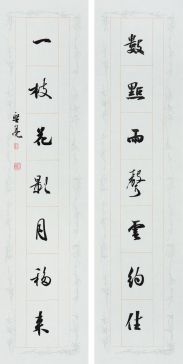 數點雨聲雲約住
一枝花影月移來